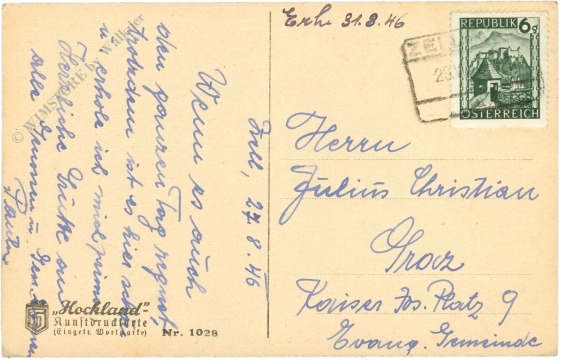 Erh. 31.8.46
REPUBLIK 6g
ÖSTERREICH
Zell, 27.8.46
Wenn es auch
den ganzen Tag regnet,
trotzdem ist es hier schön
u. erhole ich mich prima
Herzliche Grüße an
alle
Herrn
Julius Christian
Graz
Kaiser Jos. Platz 9
Evang. Gemeinde
"Hochland"-
Kunstdruckkarte
(Eingetr. Wortmarke) Nr. 1028